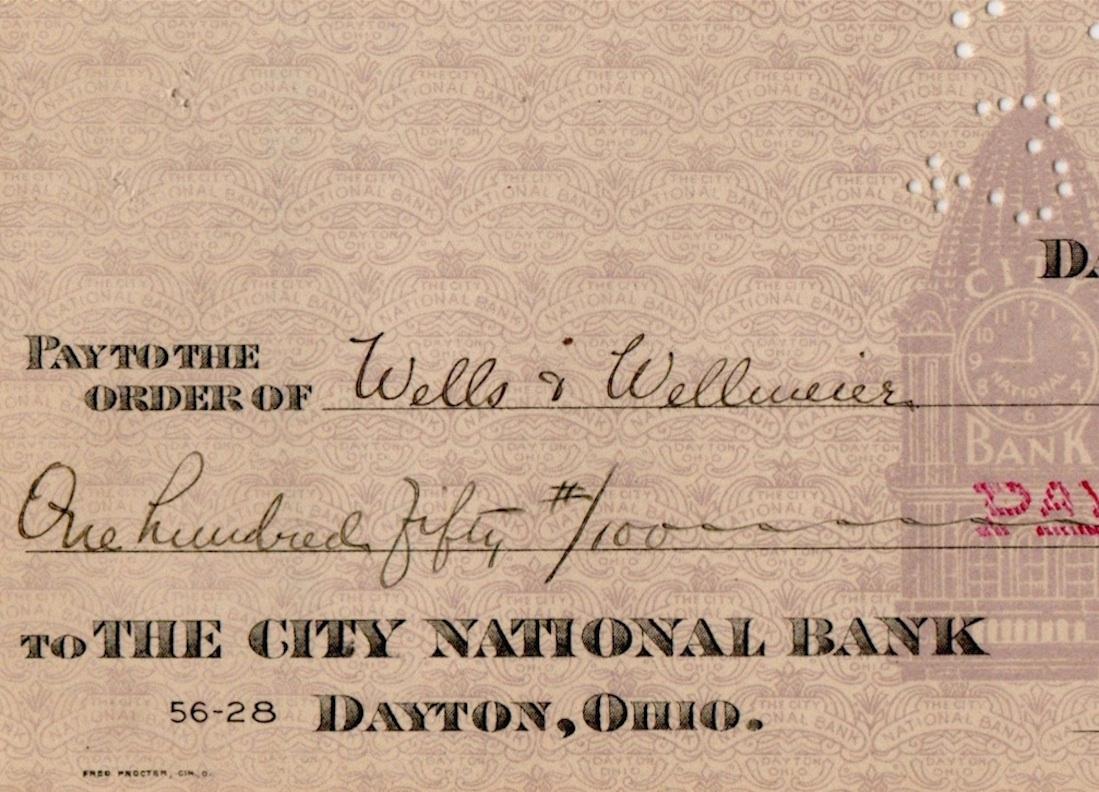 DA
CITY
NATIONAL
BANK
PAY TO THE
ORDER OF Wells & Wellmeier
One hundred fifty #/100
TO THE CITY NATIONAL BANK
56-28 DAYTON, OHIO.
FRED PROCTER, CIN. O.